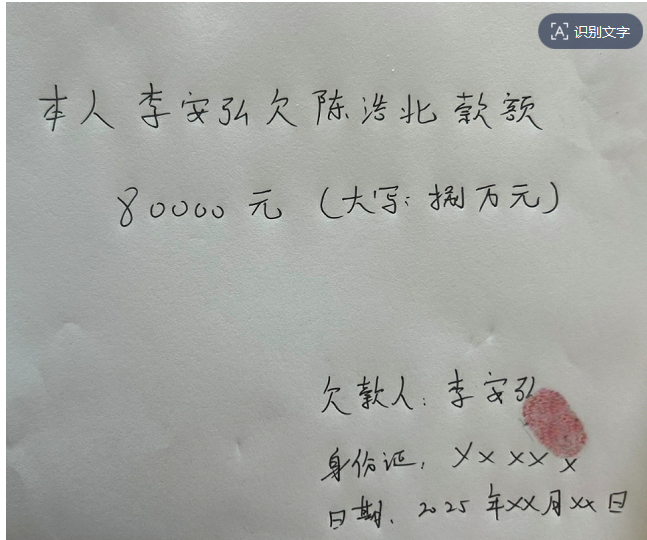 识别文字
本人李安弘欠陈浩北款额
80000元（大写：捌万元）
欠款人：李安弘
身份证：XXXXX
日期：2025年XX月XX日